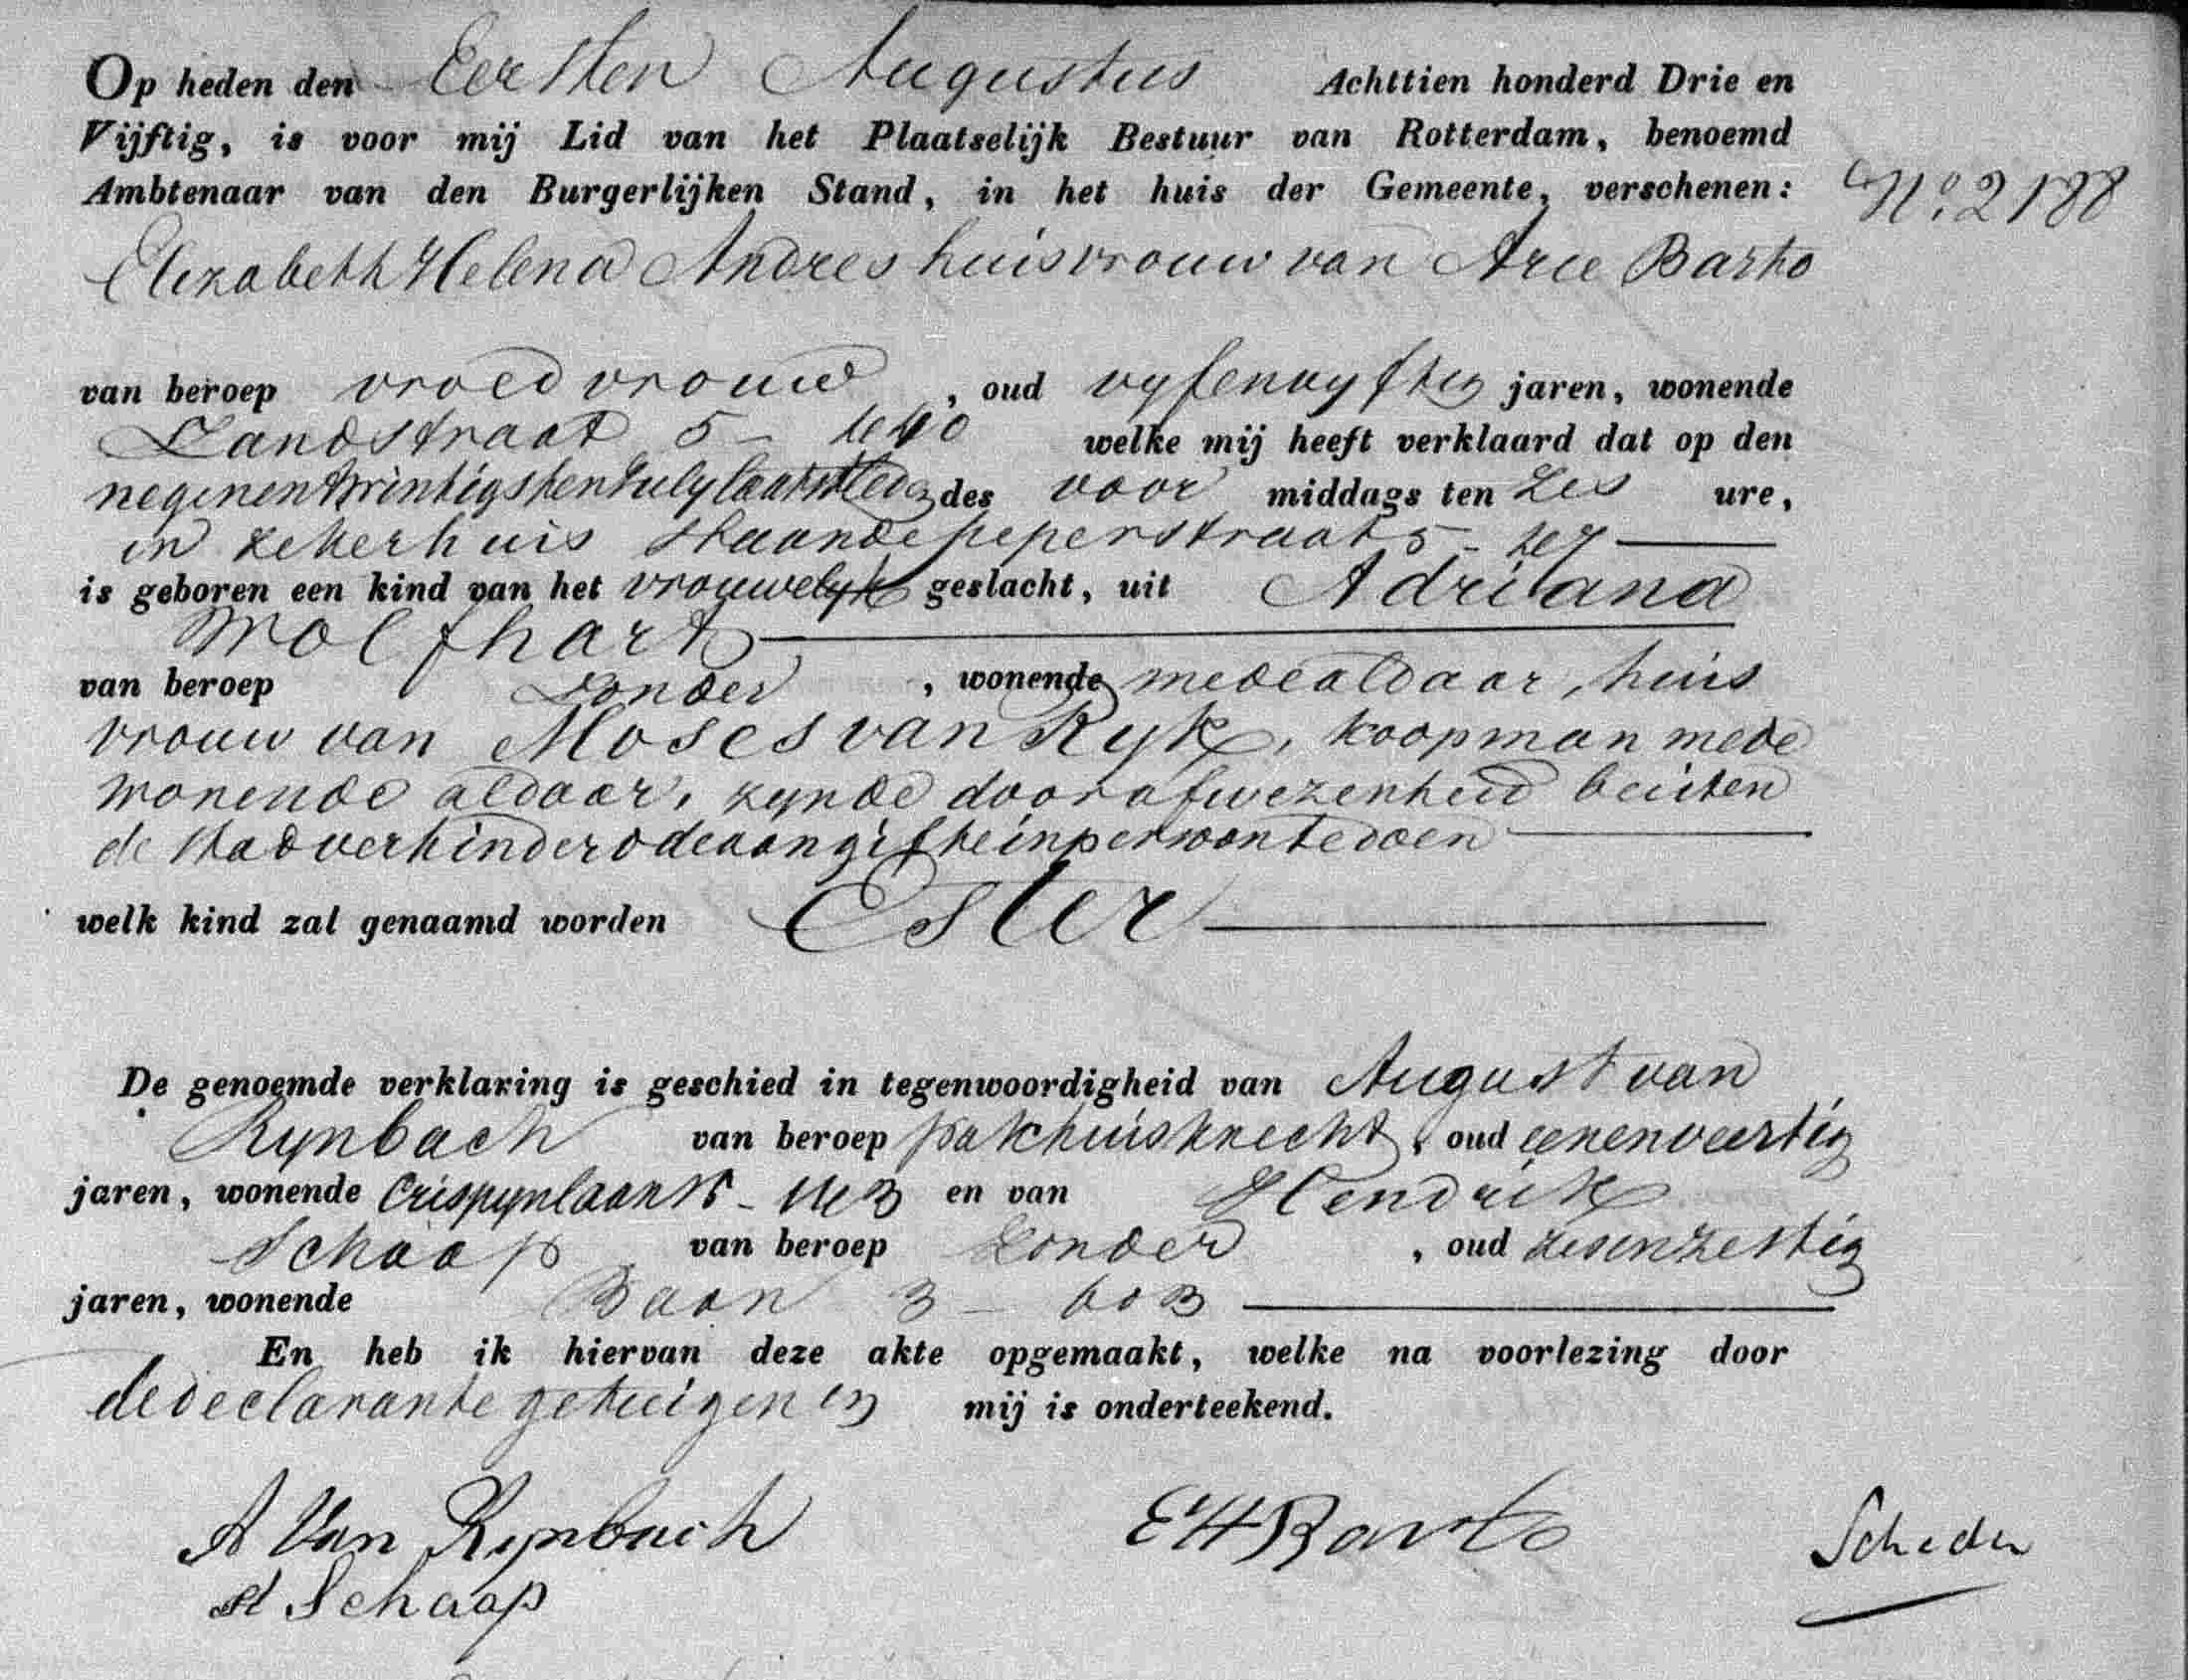 Op heden den Eersten Augustus Achttien honderd Drie en
Vijftig, is voor mij Lid van het Plaatselijk Bestuur van Rotterdam, benoemd
Ambtenaar van den Burgerlijken Stand, in het huis der Gemeente, verschenen:
No. 2188
Elizabeth Helena Andres huisvrouw van Arie Barto
van beroep vroedvrouw, oud vyfenvyftig jaren, wonende
Zandstraat 5 - welke mij heeft verklaard dat op den
negenentwintigsten July laatstleden des voor middags ten zes ure,
in zeker huis staande peperstraat 5 -
is geboren een kind van het vrouwelyk geslacht, uit Adriana
Wolfhart
van beroep Zonder, wonende mede aldaar, huis
vrouw van Moses van Ryk, koopman mede
wonende aldaar, zynde door afwezenheid buiten
de stad verhinderd de aangifte in persoon te doen
welk kind zal genaamd worden Ester
De genoemde verklaring is geschied in tegenwoordigheid van August van
Rynbach van beroep pakhuisknecht, oud eenenveertig
jaren, wonende Crispynlaan en van Hendrik
Schaap van beroep Zonder, oud zesenzestig
jaren, wonende Baan 3 - 603
En heb ik hiervan deze akte opgemaakt, welke na voorlezing door
de declarante getuigen en mij is onderteekend.
A Van Rynbach
EHBarto
H Schaap